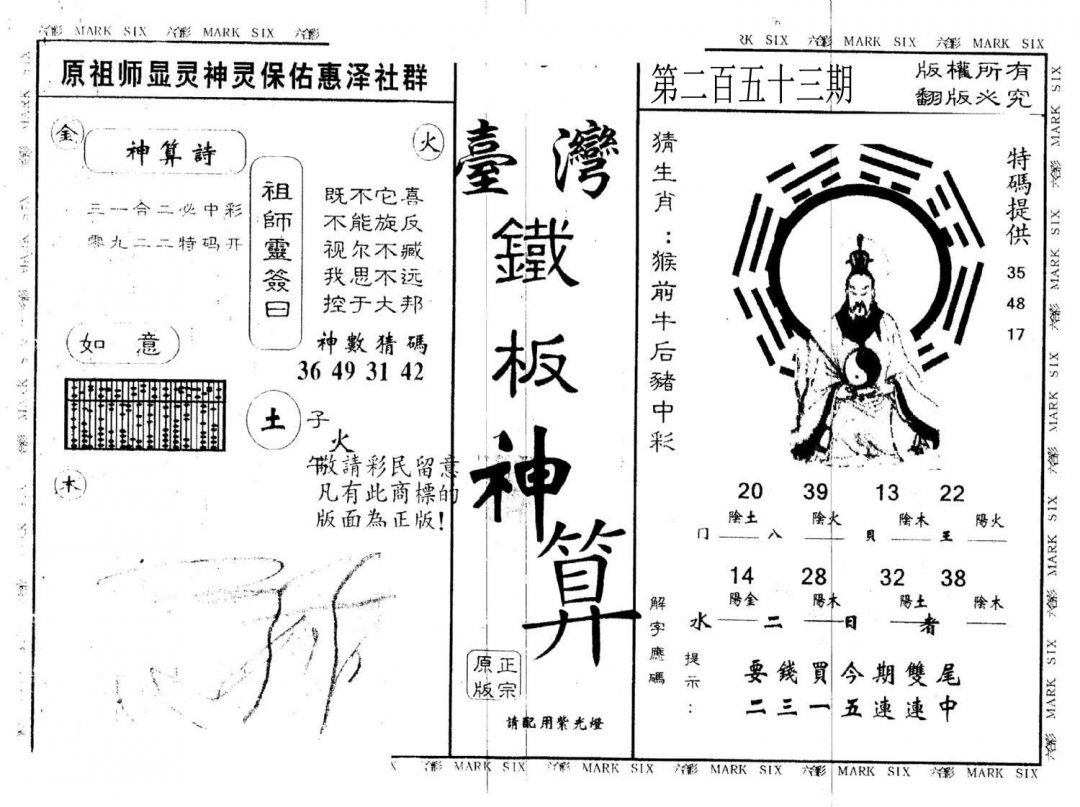 六合彩 MARK SIX 六合彩 MARK SIX 六合彩
MARK SIX 六合彩 MARK SIX 六合彩 MARK SIX
原祖师显灵神灵保佑惠泽社群
金
火
神算詩
三一合二必中彩
零九二二特码开
祖師靈簽曰
既不它喜
不能旋反
视尔不臧
我思不远
控于大邦
神數猜碼
36 49 31 42
如意
土
子
火
午
木
敬請彩民留意
凡有此商標的
版面為正版!
臺灣
鐵
板
神
算
正宗
原版
請配用紫光燈
第二百五十三期
版權所有
翻版必究
猜生肖:猴前牛后豬中彩
特碼提供
35
48
17
20 39 13 22
陰土 陰火 陰木 陽火
门 八 贝 王
14 28 32 38
陽金 陽木 陽土 陰木
水 二 日 者
解字應碼
提示:
要錢買今期雙尾
二三一五連連中
六合彩 MARK SIX 六合彩 MARK SIX 六合彩 MARK SIX 六合彩 MARK SIX 六合彩 MARK SIX
MARK SIX 六合彩 MARK SIX 六合彩 MARK SIX 六合彩 MARK SIX 六合彩 MARK SIX 六合彩